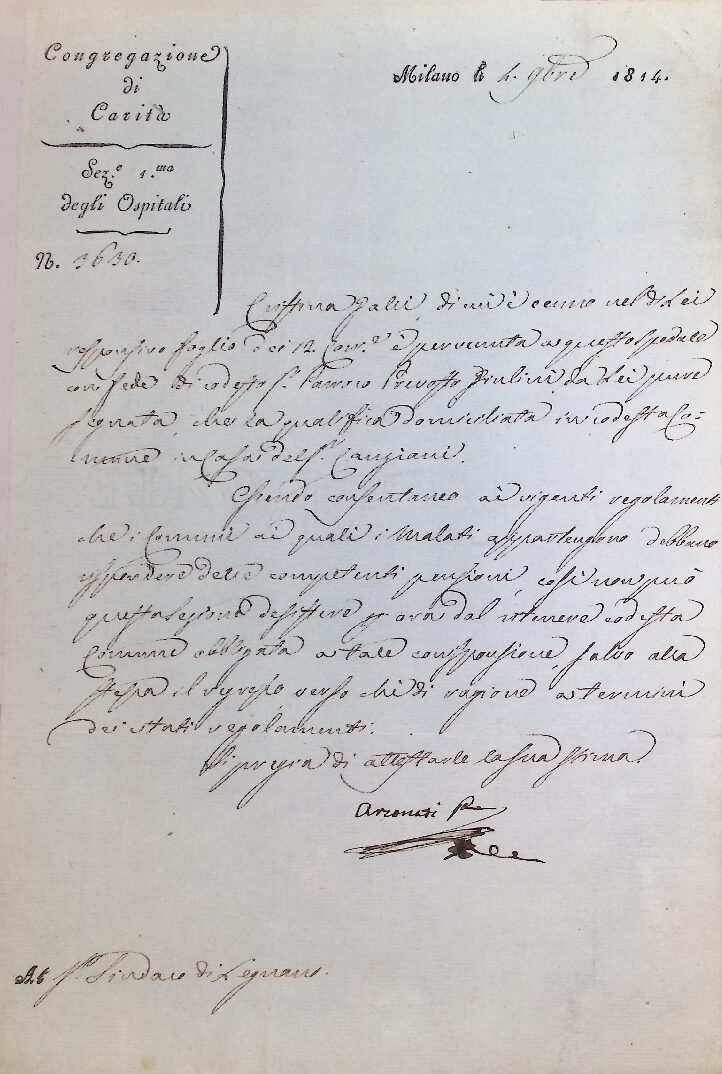 Congregazione
di
Carità
Sez.e 1.ma
degli Ospitali
N. 3630.
Milano li 4. 9bre 1814.
Galli, di cui è cenno nel di Lei
responsivo foglio dei 12. Corr.e è pervenuta a questo Spedale
con fede di codesto S.r Parroco Prevosto Giulini da Lei pure
segnata, che la qualifica domiciliata in codesta Co-
mune in Casa del S.r Cangiani.
Essendo consentaneo ai vigenti regolamenti
che i Comuni ai quali i Malati appartengono debbano
rispondere delle competenti pensioni, così non può
questa Sezione desistere p ora dal ritenere codesta
Comune obbligata a tale corrisponsione, salvo alla
stessa il regresso verso chi di ragione a termini
dei citati regolamenti.
Si pregia di attestarle la sua stima.
Arconati
Al S.r Sindaco di Legnano.